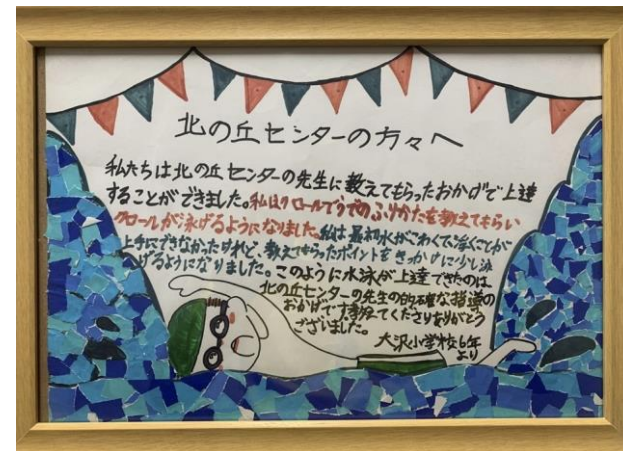 北の丘センターの方々へ
私たちは北の丘センターの先生に教えてもらったおかげで上達
することができました。私はクロールでうでのふりかたを教えてもらい
クロールが泳げるようになりました。私は最初水がこわくて浮くことが
上手にできなかったけれど、教えてもらったポイントをきっかけに少し泳
げるようになりました。このように水泳が上達できたのは、
北の丘センターの先生の的確な指導の
おかげです。教えてくださりありがとう
ございました。
大沢小学校6年
より